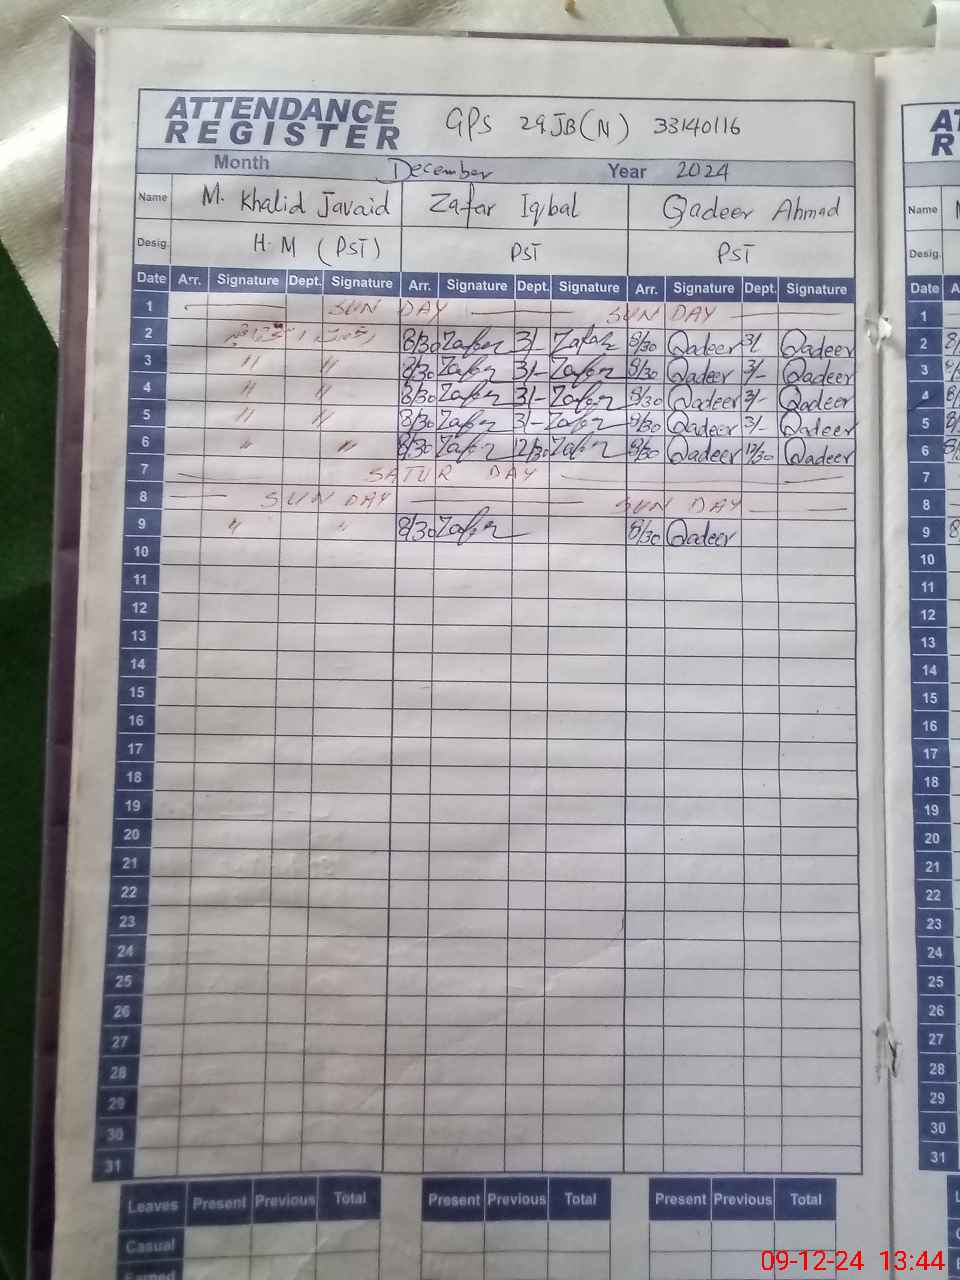 ATTENDANCE REGISTER GPS 29 JB(N) 33140116
Month December Year 2024
Name M. Khalid Javaid Zafar Iqbal Qadeer Ahmad
Desig. H.M (PST) PST PST
Date Arr. Signature Dept. Signature Arr. Signature Dept. Signature Arr. Signature Dept. Signature
1 SUN DAY SUN DAY
2 8/30 Zafar 3/- Zafar 8/30 Qadeer 3/- Qadeer
3 " " 8/30 Zafar 3/- Zafar 8/30 Qadeer 3/- Qadeer
4 " " 8/30 Zafar 3/- Zafar 8/30 Qadeer 3/- Qadeer
5 " " 8/30 Zafar 3/- Zafar 8/30 Qadeer 3/- Qadeer
6 " " 8/30 Zafar 12/30 Zafar 8/30 Qadeer 12/30 Qadeer
7 SATUR DAY
8 SUN DAY SUN DAY
9 " " 8/30 Zafar 8/30 Qadeer
10
11
12
13
14
15
16
17
18
19
20
21
22
23
24
25
26
27
28
29
30
31
Leaves Present Previous Total Present Previous Total Present Previous Total
Casual
Earned
Name
Desig.
Date
1
2
3
4
5
6
7
8
9
10
11
12
13
14
15
16
17
18
19
20
21
22
23
24
25
26
27
28
29
30
31
09-12-24 13:44